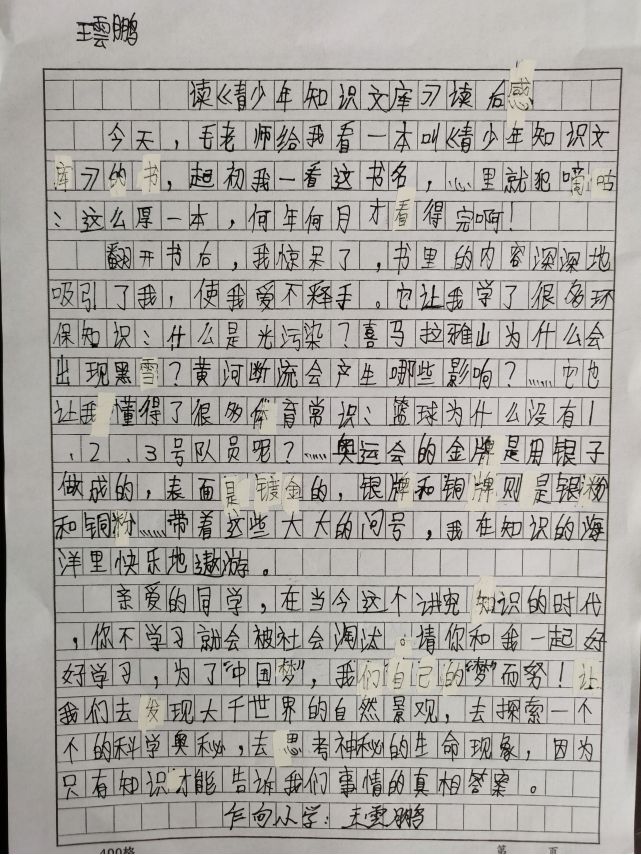 王雲鹏
读《青少年知识文库》读后感
今天，毛老师给我看一本叫《青少年知识文
库》的书，起初我一看这书名，心里就犯嘀咕
：这么厚一本，何年何月才看得完啊！
翻开书后，我惊呆了，书里的内容深深地
吸引了我，使我爱不释手。它让我学了很多环
保知识：什么是光污染？喜马拉雅山为什么会
出现黑雪？黄河断流会产生哪些影响？……它也
让我懂得了很多体育常识：篮球为什么没有1
、2、3号队员呢？……奥运会的金牌是用银子
做成的，表面是镀金的，银牌和铜牌则是银粉
和铜粉……带着这些大大的问号，我在知识的海
洋里快乐地遨游。
亲爱的同学，在当今这个讲究知识的时代
，你不学习就会被社会淘汰。请你和我一起好
好学习，为了“中国梦”，我们自己的“梦”而努！让
我们去发现大千世界的自然景观，去探索一个
个的科学奥秘，去思考神秘的生命现象，因为
只有知识才能告诉我们事情的真相答案。
乍向小学：王雲鹏
400格
第 页